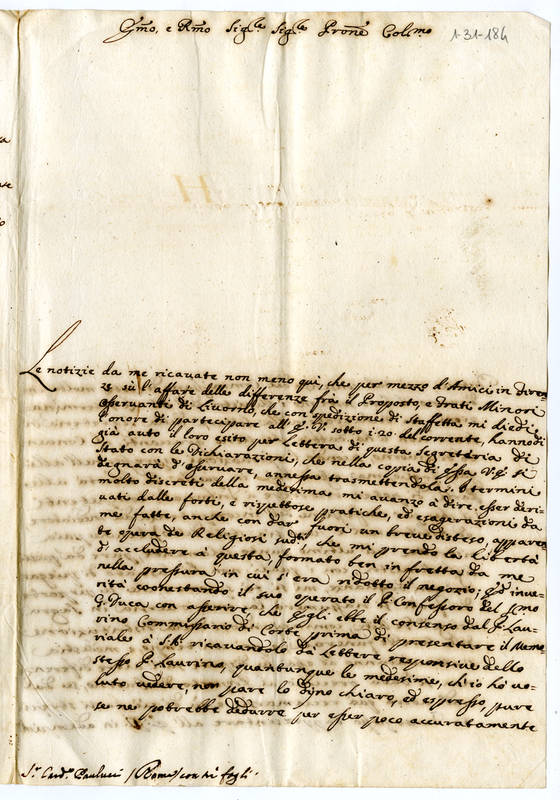 Emo, e Rmo Sigre Sigre Prone Colmo
1-31-184
Le notizie da me ricavate non meno qui, che per mezzo d'Amici in Firen
ze sù l'affare delle differenze frà il Proposto, e Frati Minori
osservanti di Livorno, che con spedizione di Staffetta mi diedi
l'onore di partecipare all' E. V. sotto i 20. del corrente, hanno di
già auto il loro esito per Lettera di questa Segreteria di
Stato con le Dichiarazioni, che nella copia di essa V. E. si
degnarà d'osservare, annessa trasmettendola. I termini
molto discreti della medesima mi avanzo à dire, esser deri
vati dalle forti, e rispettose pratiche, ed esagerazioni da
me fatte, anche con dar fuori un breve disteso, apparen
te opera de Religiosi sudti, che mi prendo la libertà
d'accludere à questa, formato ben in fretta da me
nella pressura, in cui s'era ridotto il negozio; ed in ve
rità coonestando il suo operato il P. Confessore del Smo
G. Duca con asserire, che egli ebbe il consenso dal P. Lau
rino Commissario di Corte prima di presentare il Memo
riale à S. A. ricavandolo da Lettere responsive dello
stesso P. Laurino, quantunque le medesime, ch'io hò vo
luto vedere, non pare lo dijno chiaro, ed espresso, pure
se ne potrebbe dedurre per esser poco accuratamente
Sr. Card. Paulucci (Roma) con tri fogli.